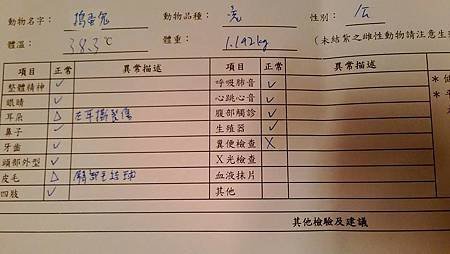 動物名字： 搗蛋鬼 動物品種： 兔 性別： 公
體溫： 38.3℃ 體重： 1.192kg (未結紮之雌性動物請注意生
項目 正常 異常描述 項目 正常 異常描述
整體精神 ✓ 呼吸肺音 ✓
眼睛 ✓ 心跳心音 ✓
耳朵 △ 左耳撕裂傷 腹部觸診 ✓
鼻子 ✓ 生殖器 ✓
牙齒 ✓ 糞便檢查 X
頭部外型 ✓ X光檢查
皮毛 △ 血液抹片
四肢 ✓ 其他
其他檢驗及建議